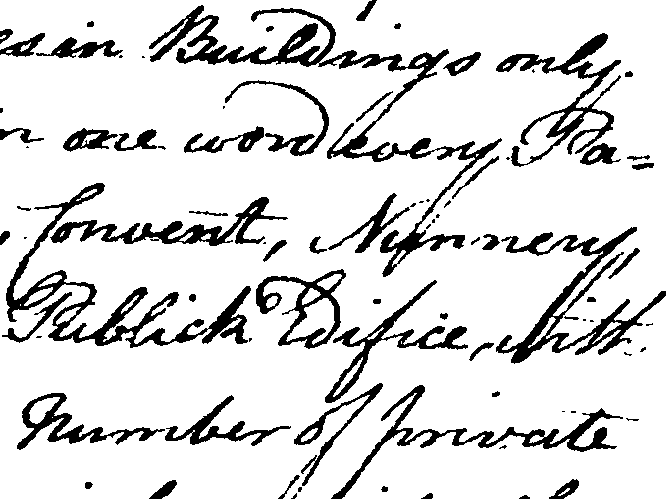 es in Buildings only.
n one word every Pa=
, Convent, Nunnery,
Publick Edifice, with
Number of private